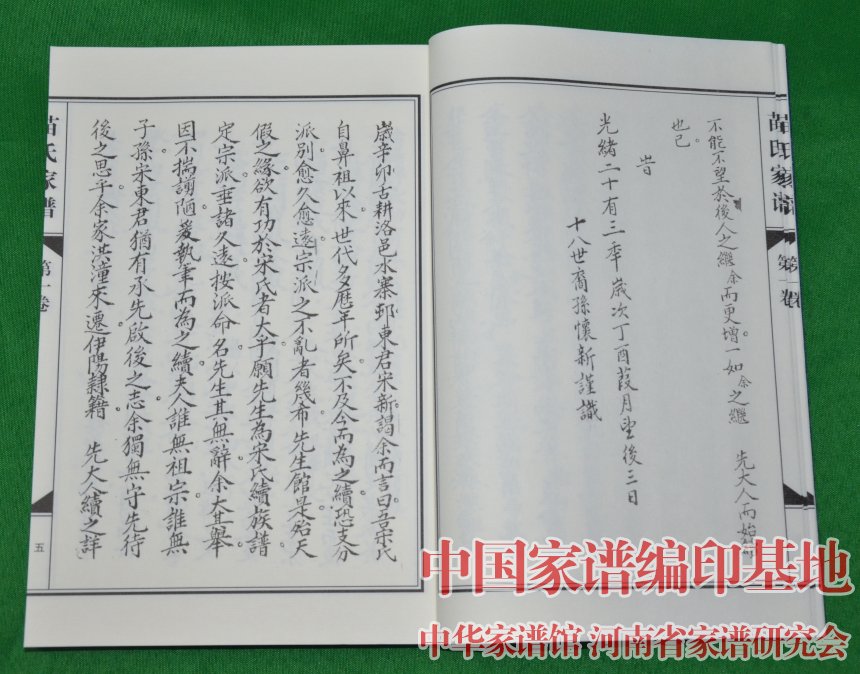 不能不望於後人之繼余而更增一如余之繼 先大人而始
也已
旹
光緒二十有三季歲次丁酉葭月望後三日
十八世裔孫懷新謹識
苗氏家谱
第一卷
歲辛卯古耕洛邑水寨邨東君宋新謁余而言曰吾宋氏
自鼻祖以來世代多歷年所矣不及今而為之續恐支分
派別愈久愈遠宗派之不亂者幾希先生館是殆天
假之緣欲有功於宋氏者大乎願先生為宋氏續族譜
定宗派垂諸久遠按派命名先生其無辭余大其舉
因不揣謭陋爰執筆而為之續夫人誰無祖宗誰無
子孫宋東君猶有承先啟後之志余獨無守先待
後之思乎余家洪潼來遷伊陽隸籍 先大人續之詳
苗氏家谱
第一卷
五
中国家谱编印基地
中华家谱馆 河南省家谱研究会